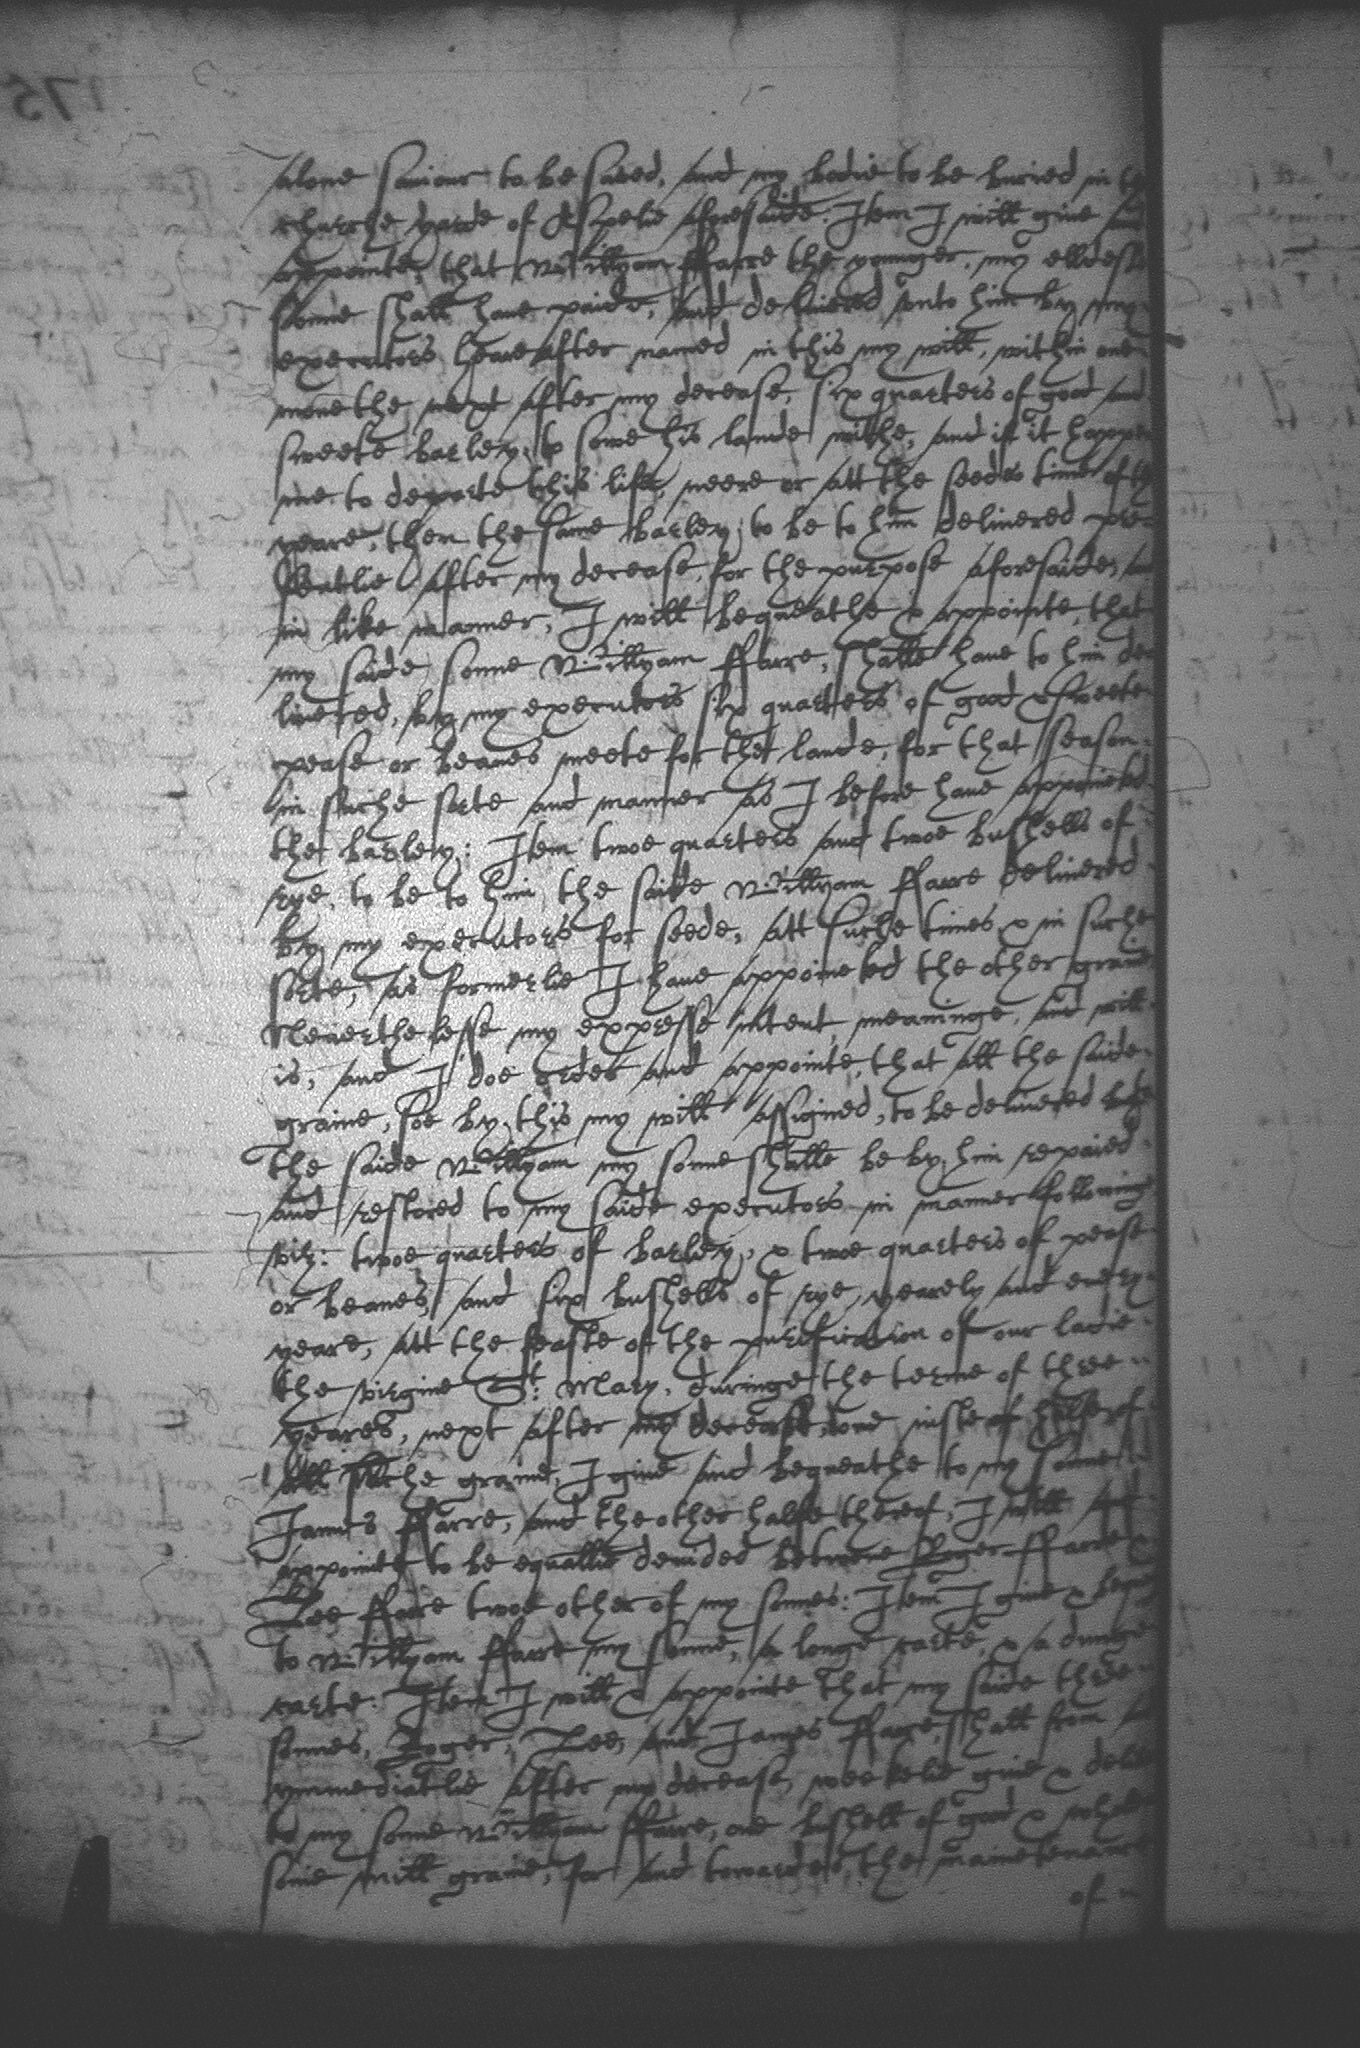 alone saviour to be saved, and my bodie to be buried in
churche yarde of aforesaide. Item I will give and
appointe, that Willyam ffarre the younger, my eldest
sonne shall have paide, and delivered unto him by my
executors heareafter named in this my will, within one
monethe next after my decease, six quarters of good and
sweete barley, to sowe his lande withe, and if it happen
me to departe this life, neere or att the seedes time of the
yeare, then the same barley, to be to him delivered pre-
sentlie after my decease, for the purpose aforesaide, and
in like manner, I will bequeathe & appointe, that
my saide sonne Willyam ffarre, shalle have to him de-
livered, by my executors six quarters of good & sweete
pease or beanes meete for the lande, for that season
in suche sorte and manner as I before have appointed
the barley: Item twoe quarters and twoe bushells of
rye, to be to him the saide Willyam ffarre delivered
by my executors for seede, att suche times & in suche
sorte, as formerlie I have appointed the other graine
Neverthelesse my expresse intent, meaninge, and will
is, and I doe order and appointe, that all the saide
graine, soe by this my will assigned, to be delivered
the saide Willyam my sonne shalle be by him repaied
and restored to my saide executors in manner following
viz: twoe quarters of barley, & twoe quarters of pease
or beanes, and six bushells of rye, yearely and every
yeare, att the feaste of the purification of our ladie
the virgine St: Mary, duringe the terme of three
yeares, next after my decease, halfe of
graine, I give and bequeathe to my sonne
James ffarre, and the other halfe thereof, I will and
appointe to be equallie devided betwene Roger ffarre &
Lee ffarre twoe other of my sonnes: Item I give &
to Willyam ffarre my sonne, a longe carte, & a dunge
carte: Item I will & appointe that my saide three
sonnes, Roger, Lee, and James ffarre, shall from and
ymmediatlie after my decease, weekelie give & deliver
to my sonne Willyam ffarre, one bushell of good & whole
some mill graine, for and towardes, the maintenance
of